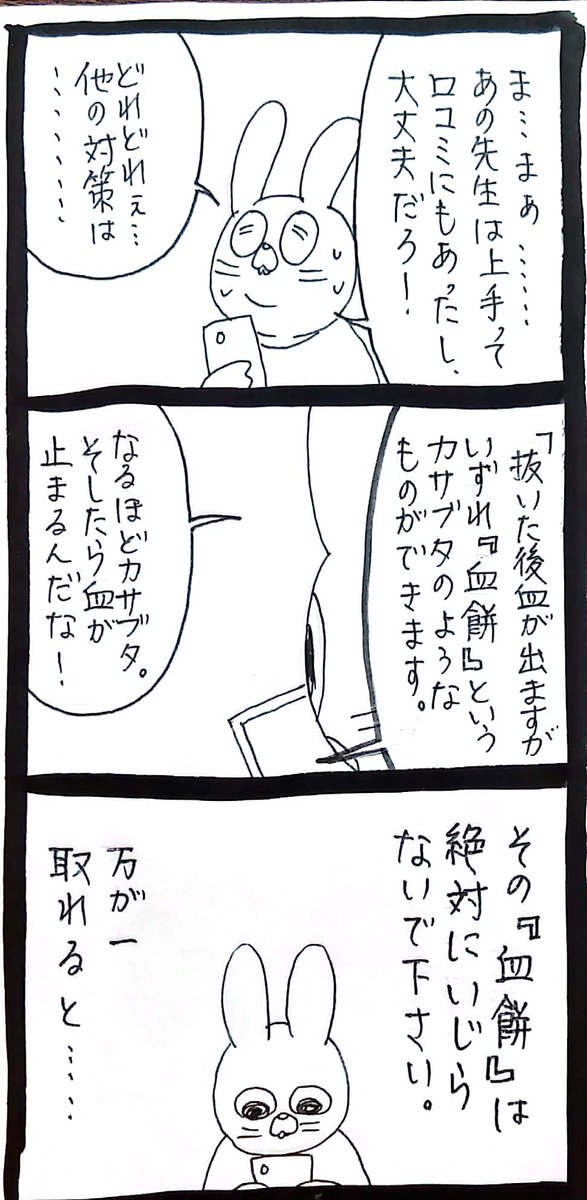 ま…まぁ………
あの先生は上手って
口コミにもあったし、
大丈夫だろ！
どれどれぇ…
他の対策は
…………
「抜いた後血が出ますが
いずれ『血餅』という
カサブタのような
ものができます。
なるほどカサブタ。
そしたら血が
止まるんだな！
その『血餅』は
絶対にいじら
ないで下さい。
万が一
取れると……